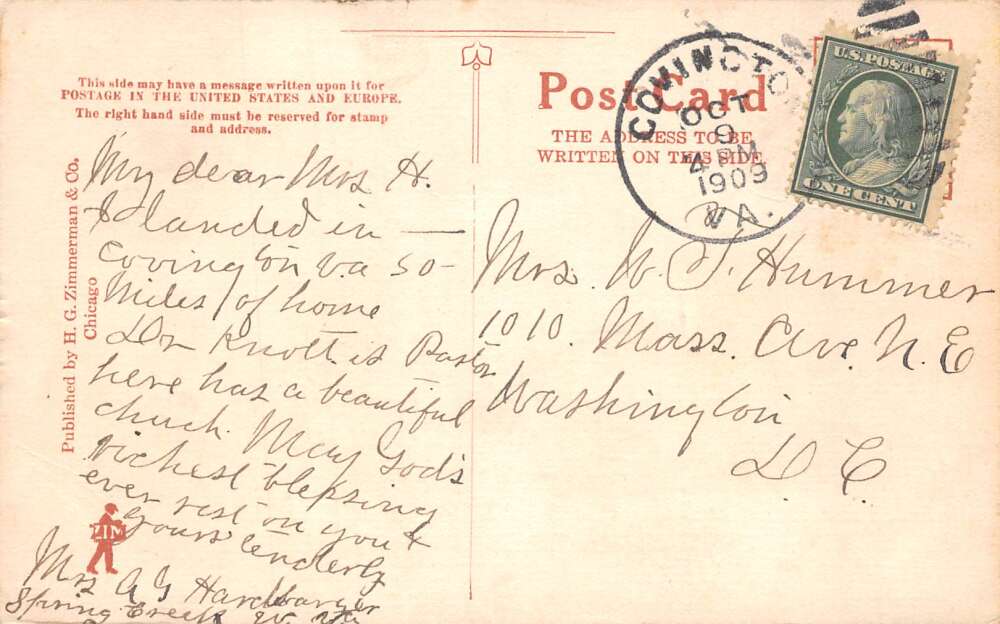 This side may have a message written upon it for
POSTAGE IN THE UNITED STATES AND EUROPE.
The right hand side must be reserved for stamp
and address.
Post Card
THE ADDRESS TO BE
WRITTEN ON THIS SIDE
COVINGTON
OCT
9
4 PM
1909
VA.
U.S. POSTAGE
ONE CENT
Published by H. G. Zimmerman & Co.
Chicago
ZIM
My dear Mrs H.
I landed in —
Covington Va 50-
Miles of home
Dr Knott is Pastor
here has a beautiful
chuch. May God's
richest blessing
ever rest on you &
yours tenderly
Mrs A G Hardbarger
Spring Creek W. Va
Mrs. W. T. Hummer
1010. Mass. Ave. N. E
Washington
D C